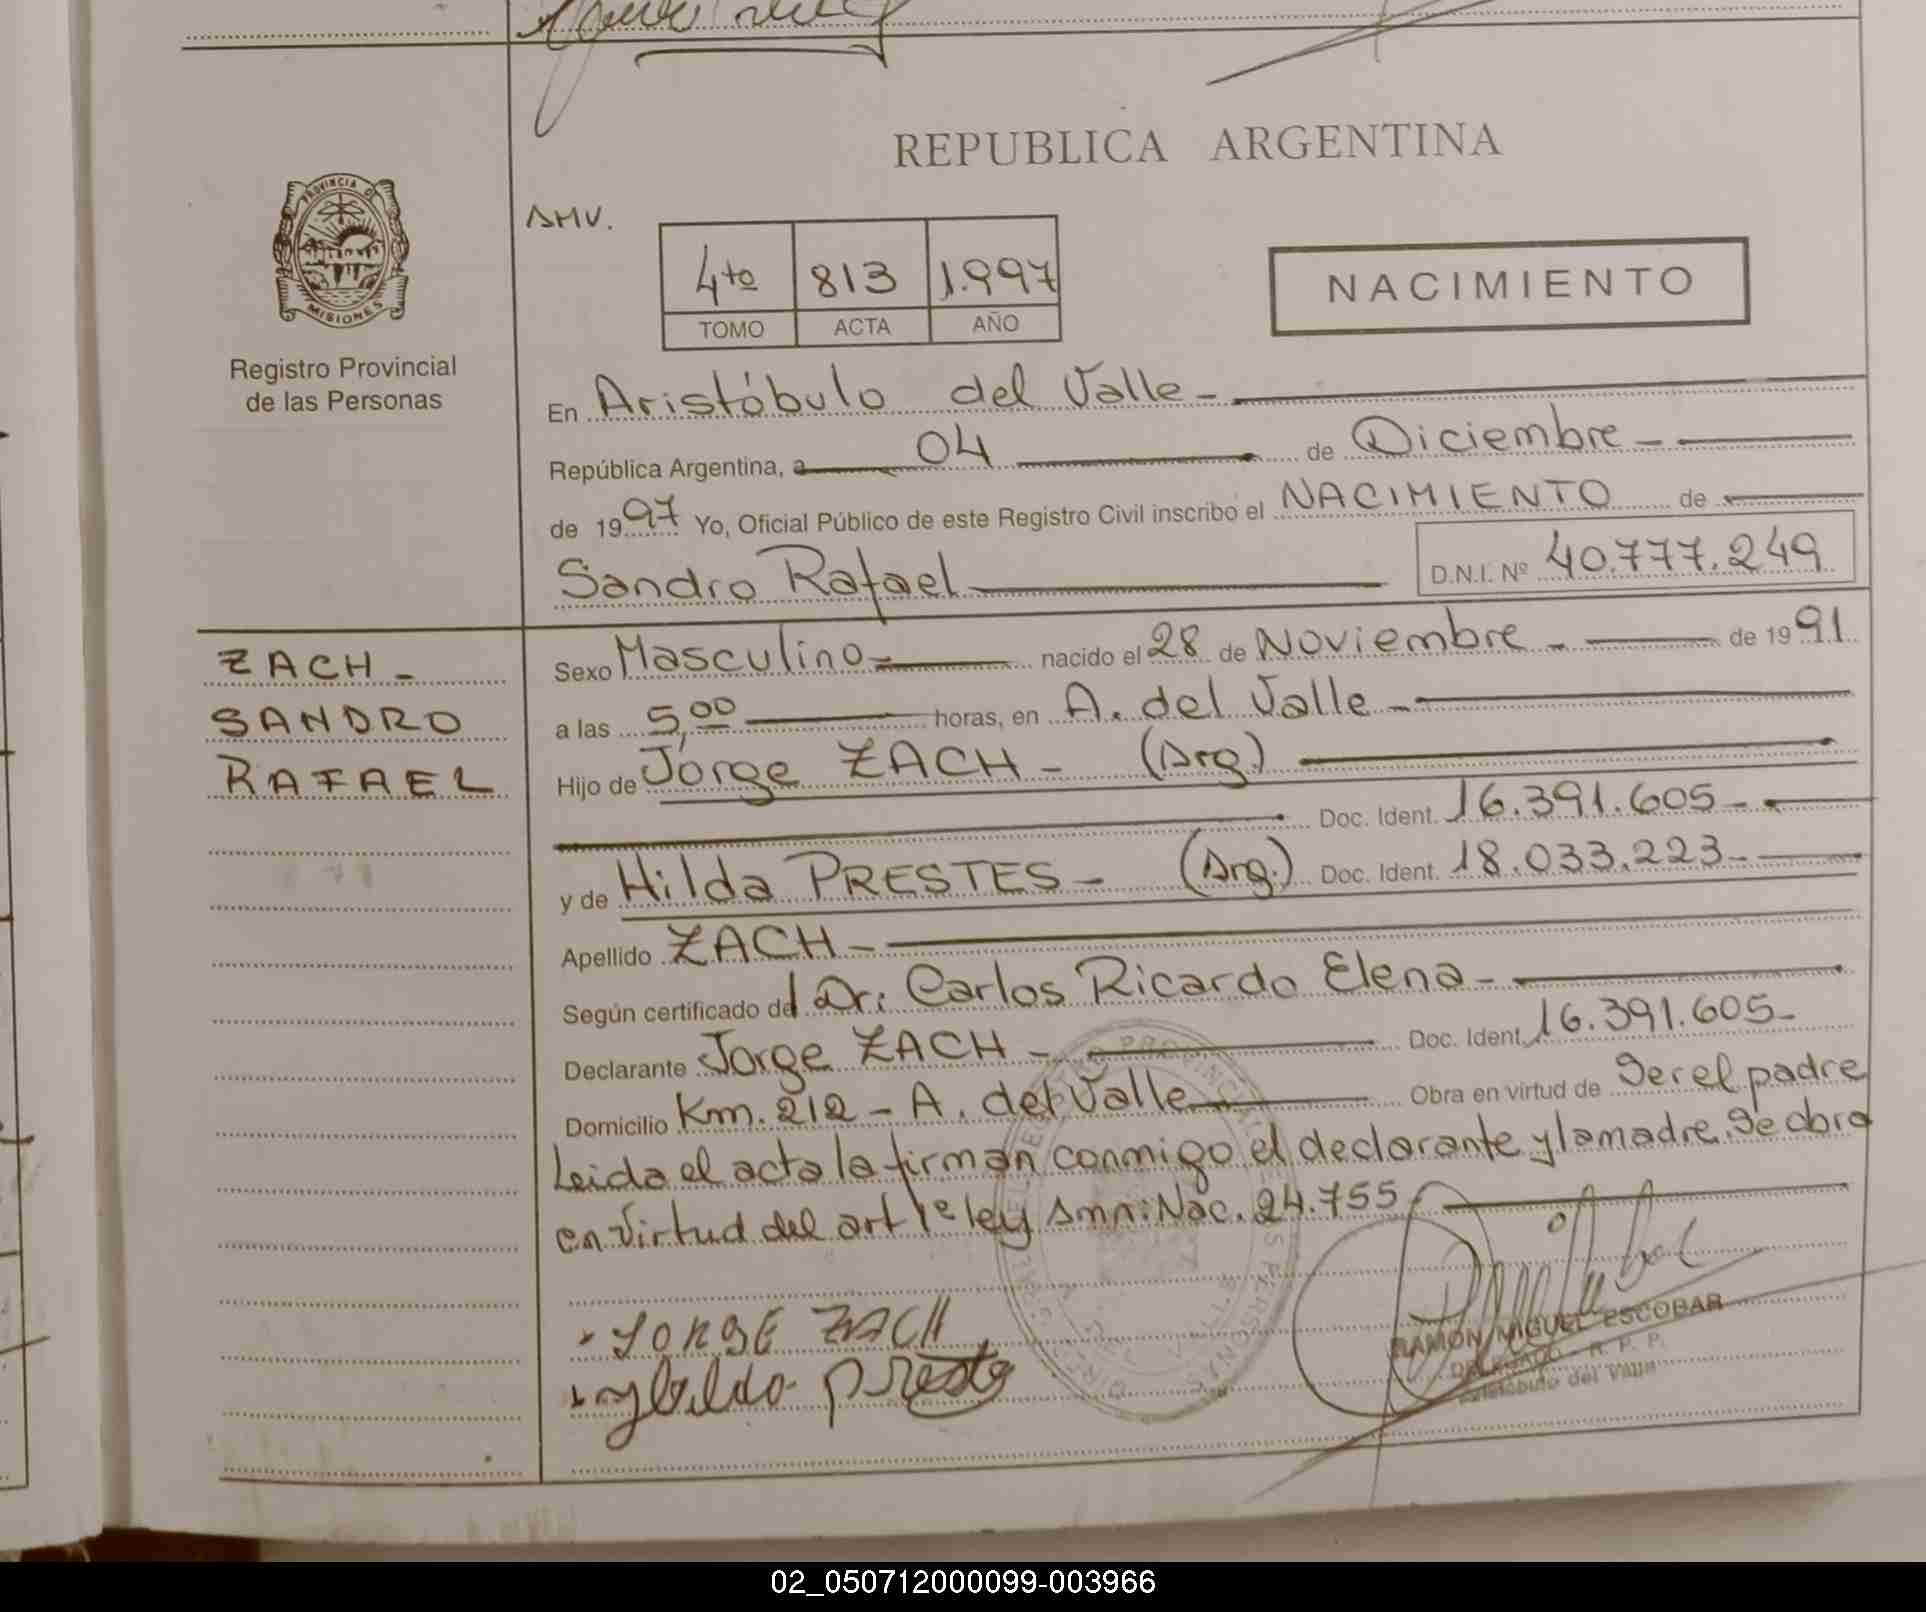 REPUBLICA ARGENTINA
PROVINCIA D
MISIONES
Registro Provincial
de las Personas
AMV.
4to 813 1.997
TOMO ACTA AÑO
NACIMIENTO
En Aristóbulo del Valle -
República Argentina, a 04 de Diciembre -
de 1997 Yo, Oficial Público de este Registro Civil inscribo el NACIMIENTO de
Sandro Rafael D.N.I. Nº 40.777.249
ZACH -
SANDRO
RAFAEL
Sexo Masculino - nacido el 28 de Noviembre - de 1991
a las 5,00 horas, en A. del Valle -
Hijo de Jorge ZACH - (Arg.)
Doc. Ident. 16.391.605 -
y de Hilda PRESTES - (Arg.) Doc. Ident. 18.033.223 -
Apellido ZACH -
Según certificado del Dr: Carlos Ricardo Elena -
Declarante Jorge ZACH - Doc. Ident. 16.391.605 -
Domicilio Km. 212 - A. del Valle Obra en virtud de Ser el padre
Leida el acta la firman conmigo el declarante y la madre. Se obra
en virtud del art 1º ley Amn: Nac. 24.755
JORGE ZACH
RAMON MIGUEL ESCOBAR
DELEGADO - R. P. P.
Aristobulo del Valle
02_050712000099-003966